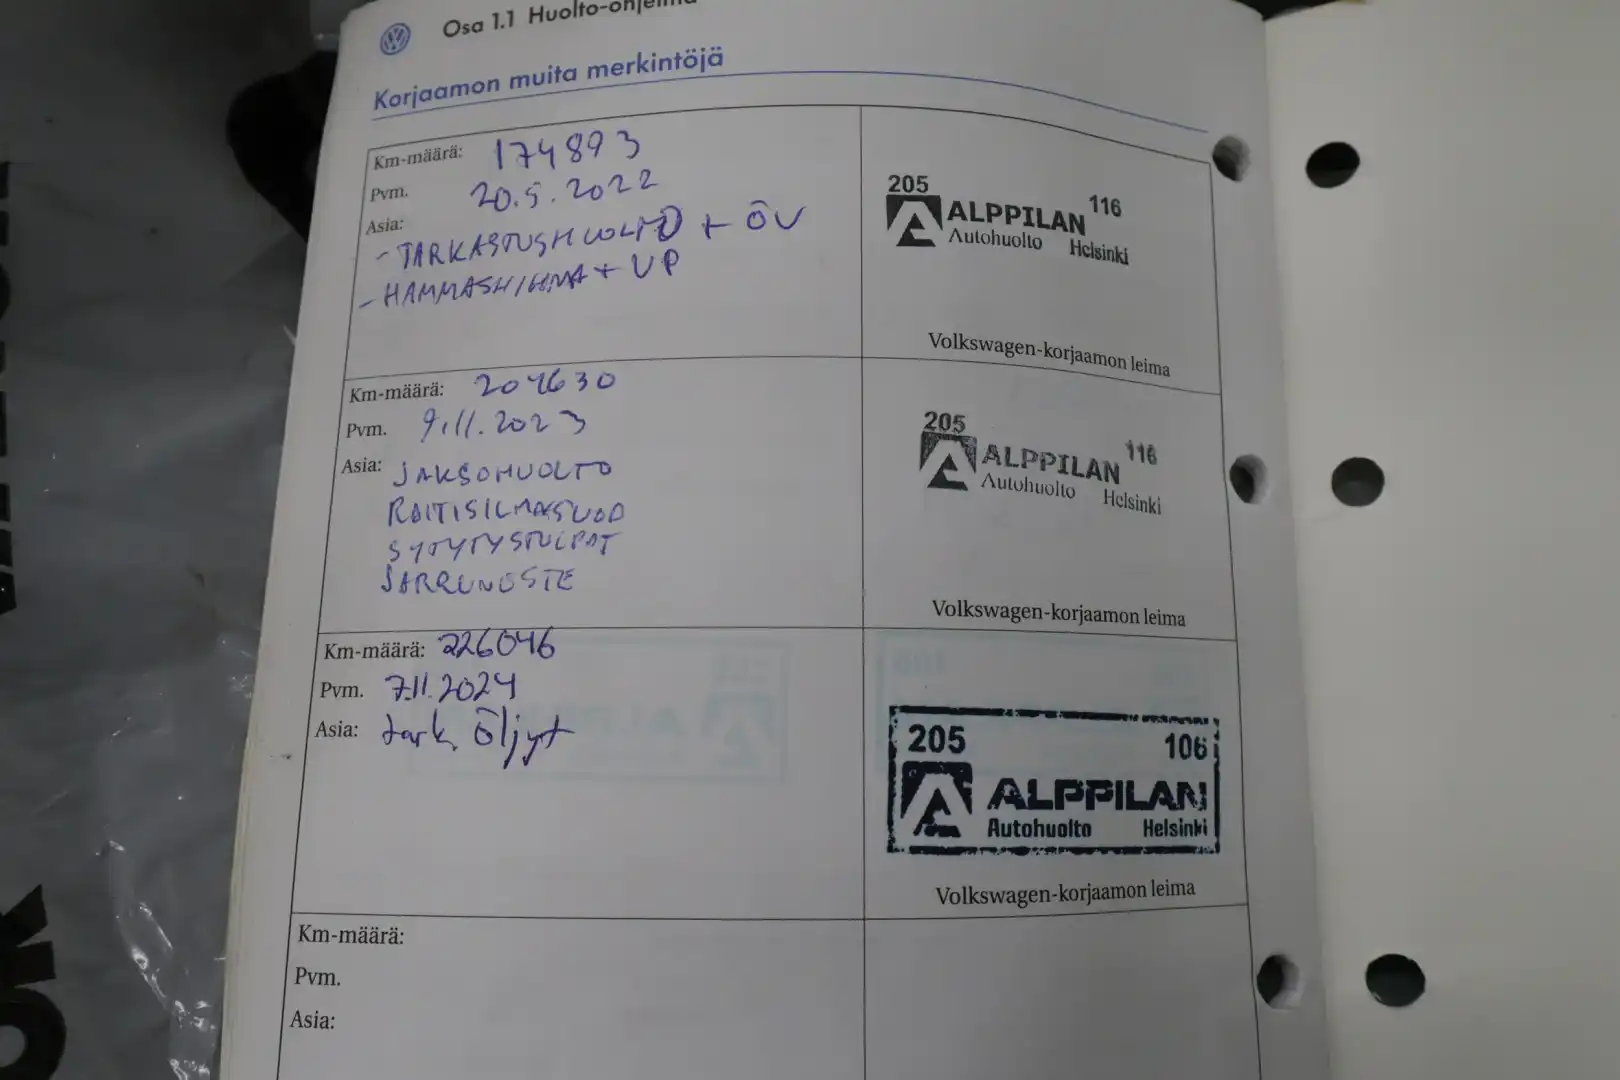 Osa 1.1 Huolto-ohjelma
Korjaamon muita merkintöjä
Km-määrä: 174893
Pvm. 20.5.2022
Asia:
- TARKASTUSHUOLTO + ÖV
- HAMMASHIHNA + VP
205 116
ALPPILAN
Autohuolto Helsinki
Volkswagen-korjaamon leima
Km-määrä: 204630
Pvm. 9.11.2023
Asia: JAKSOHUOLTO
RAITISILMASUOD
SYTYTYSTULPAT
JARRUNESTE
205 116
ALPPILAN
Autohuolto Helsinki
Volkswagen-korjaamon leima
Km-määrä: 226046
Pvm. 7.11.2024
Asia: tark. Öljyt
205 106
ALPPILAN
Autohuolto Helsinki
Volkswagen-korjaamon leima
Km-määrä:
Pvm.
Asia: